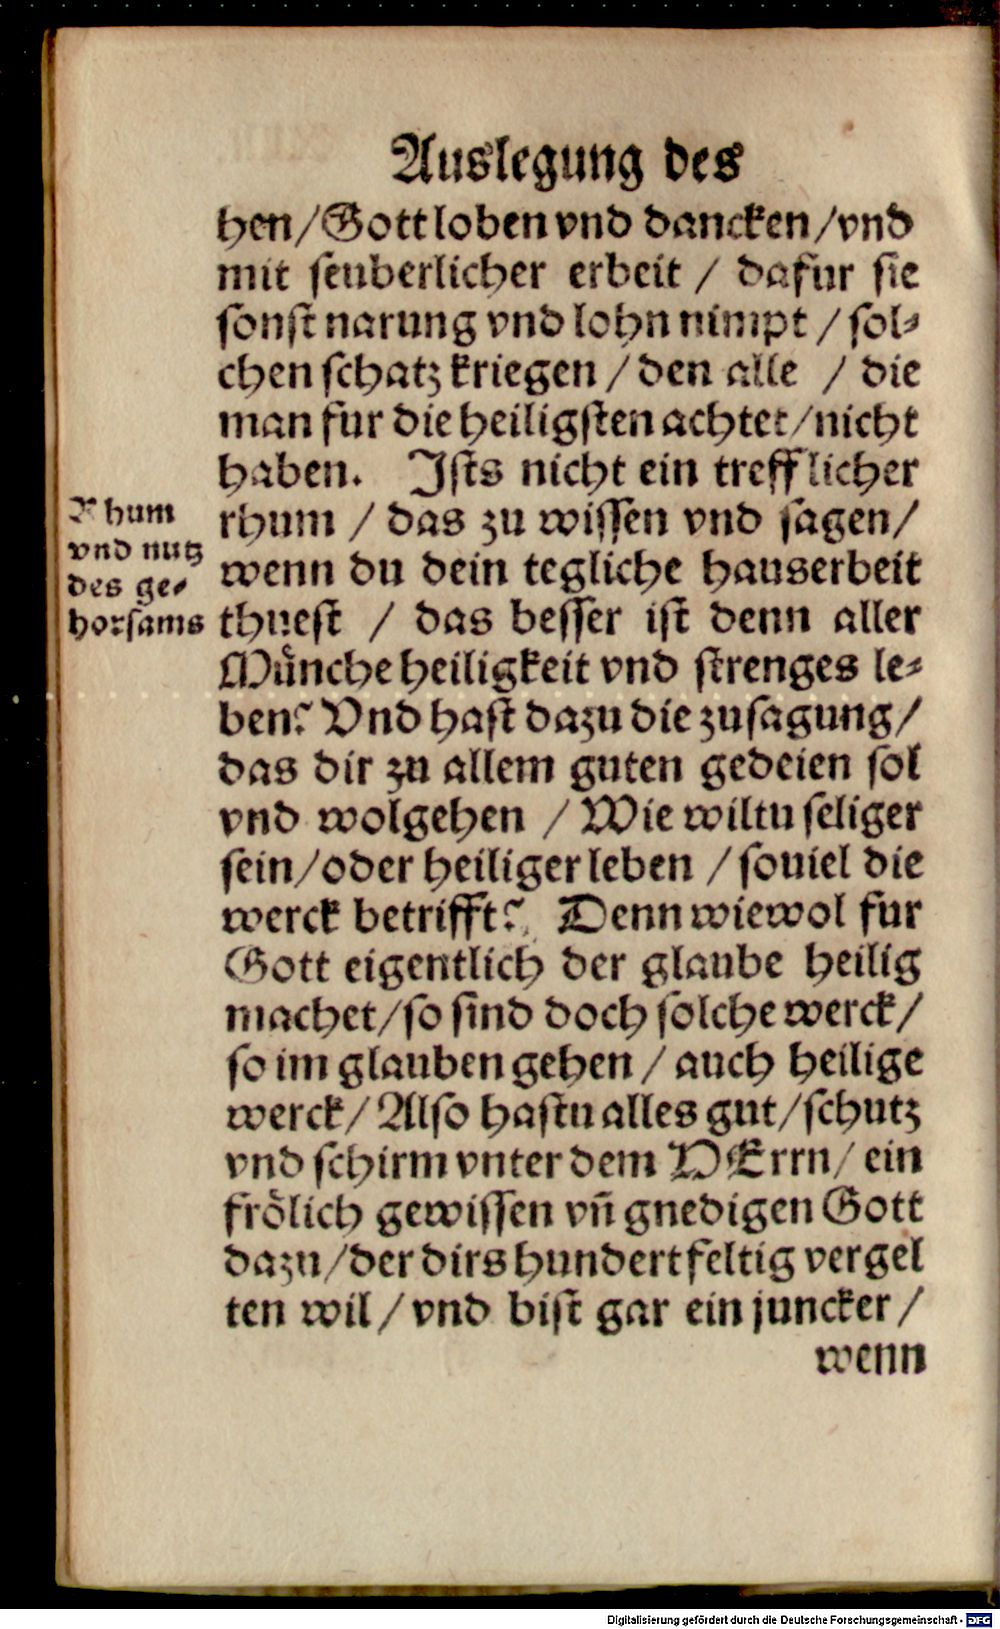 Auslegung des
hen/Gott loben vnd dancken/vnd
mit seuberlicher erbeit / dafur sie
sonst narung vnd lohn nimpt / sol⸗
chen schatz kriegen / den alle / die
man fur die heiligsten achtet/nicht
haben. Ists nicht ein trefflicher
rhum / das zu wissen vnd sagen/
wenn du dein tegliche hauserbeit
thuest / das besser ist denn aller
Münche heiligkeit vnd strenges le⸗
ben? Vnd hast dazu die zusagung/
das dir zu allem guten gedeien sol
vnd wolgehen / Wie wiltu seliger
sein/oder heiliger leben / souiel die
werck betrifft? Denn wiewol fur
Gott eigentlich der glaube heilig
machet/so sind doch solche werck/
so im glauben gehen / auch heilige
werck/ Also hastu alles gut/schutz
vnd schirm vnter dem HErrn/ ein
frölich gewissen vn̄ gnedigen Gott
dazu/der dirs hundertfeltig vergel
ten wil / vnd bist gar ein juncker /
wenn
Rhum
vnd nutz
des ge⸗
horsams
Digitalisierung gefördert durch die Deutsche Forschungsgemeinschaft - DFG